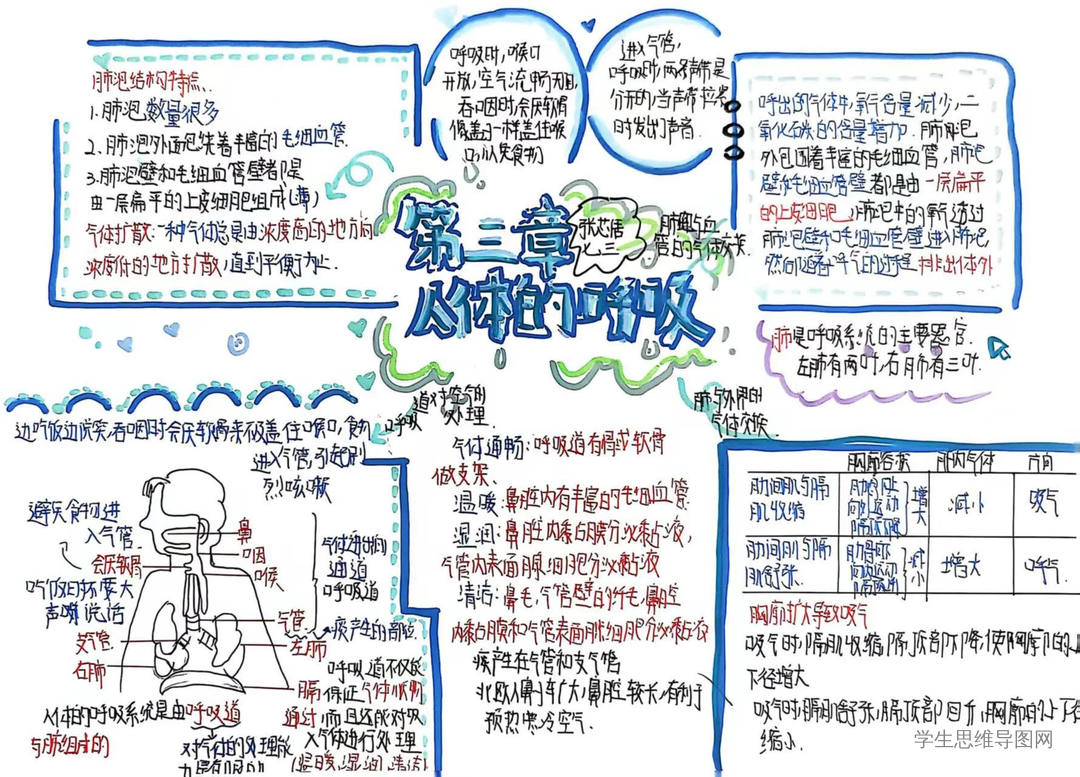 肺泡结构的特点
1.肺泡数量很多
2.肺泡外面包绕着丰富的毛细血管
3.肺泡壁和毛细血管壁都是
由一层扁平的上皮细胞组成(薄)
气体扩散:一种气体总是由浓度高的地方向
浓度低的地方扩散,直到平衡为止.
呼吸时,喉口
开放,空气流畅无阻,
吞咽时,会厌软骨
像盖子一样盖住喉
口,以免食物
进入气管,
呼吸时,两条声带是
分开的,当声带拉紧
时发出声音.
呼出的气体中,氧气含量减少,二
氧化碳的含量增加.肺泡
外包围着丰富的毛细血管,肺泡
壁和毛细血管壁都是由一层扁平
的上皮细胞,肺泡中的氧透过
肺泡壁和毛细血管壁进入肺泡
然后随着呼气的过程排出体外
第三章
人体的呼吸
张芯语
七.三
肺泡与血
管的气体交换
肺是呼吸系统的主要器官.
左肺有两叶,右肺有三叶.
边吃饭边说笑,吞咽时会厌软骨来不及盖住喉口,食物
进入气管,引起剧
烈咳嗽
避免食物进
入气管.
会厌软骨
吃饭的时候不要大
声嚷说话
支气管
右肺
鼻
咽
喉
气管
左肺
膈
气体进出的
通道
呼吸道
痰产生的部位
人体的呼吸系统是由呼吸道
与肺组成的
对气体的处理能
力是有限的
呼吸道不仅能
保证气体顺畅
通过,而且还能对吸
入气体进行处理
(温暖,湿润,清洁)
呼吸道对空气的
处理.
气体通畅:呼吸道有骨或软骨
做支架.
温暖:鼻腔内有丰富的毛细血管.
湿润:鼻腔内黏膜分泌黏液,
气管内表面腺细胞分泌黏液
清洁:鼻毛,气管壁的纤毛,鼻腔
内黏膜和气管表面腺细胞分泌黏液
痰产生在气管和支气管
北欧人鼻子较大,鼻腔较长,有利于
预热寒冷空气.
肺与外界的
气体交换
胸廓容积 肺内气体 方向
肋间肌与膈
肌收缩
增大 减小 吸气
肋间肌与膈
肌舒张
减小 增大 呼气
胸廓扩大导致吸气
吸气时,膈肌收缩,膈顶部下降,使胸廓的上
下径增大
吸气时,膈肌舒张,膈顶部回升,胸廓的上下径
缩小.
学生思维导图网